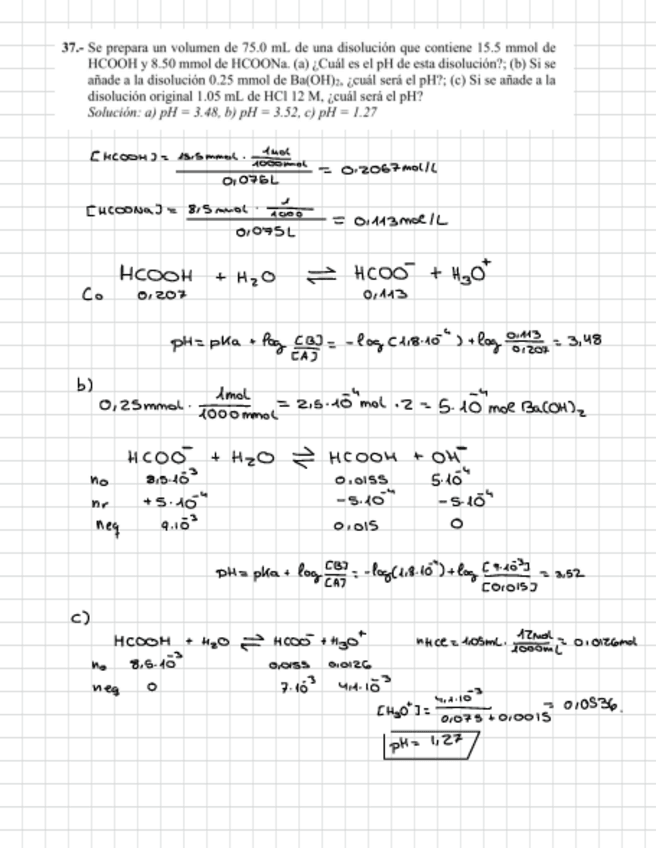 37.- Se prepara un volumen de 75.0 mL de una disolución que contiene 15.5 mmol de
HCOOH y 8.50 mmol de HCOONa. (a) ¿Cuál es el pH de esta disolución?; (b) Si se
añade a la disolución 0.25 mmol de Ba(OH)₂, ¿cuál será el pH?; (c) Si se añade a la
disolución original 1.05 mL de HCl 12 M, ¿cuál será el pH?
Solución: a) pH = 3.48, b) pH = 3.52, c) pH = 1.27
[HCOOH] = 15,5 mmol · 1mol / 1000mmol / 0,075L = 0,2067 mol/L
[HCOONa] = 8,5 mmol · 1 / 1000 / 0,075L = 0,113 mol/L
HCOOH + H₂O ⇌ HCOO⁻ + H₃O⁺
Co 0,207 0,113
pH = pKa + log [B]/[A] = -log(1,8·10⁻⁴) + log 0,113/0,207 = 3,48
b)
0,25mmol · 1mol/1000mmol = 2,5·10⁻⁴ mol · 2 = 5·10⁻⁴ mol Ba(OH)₂
HCOO⁻ + H₂O ⇌ HCOOH + OH⁻
no 8,5·10⁻³ 0,0155 5·10⁻⁴
nr +5·10⁻⁴ -5·10⁻⁴ -5·10⁻⁴
neq 9·10⁻³ 0,015 0
pH = pKa + log [B]/[A] = -log(1,8·10⁻⁴) + log [9·10⁻³]/[0,015] = 3,52
c)
HCOOH + H₂O ⇌ HCOO⁻ + H₃O⁺ nHCl = 1,05mL · 12mol/1000mL = 0,0126mol
no 8,5·10⁻³ 0,0155 0,0126
neq 0 7·10⁻³ 4,1·10⁻³
[H₃O⁺] = 4,1·10⁻³ / 0,075 + 0,0015 = 0,0536.
pH = 1,27